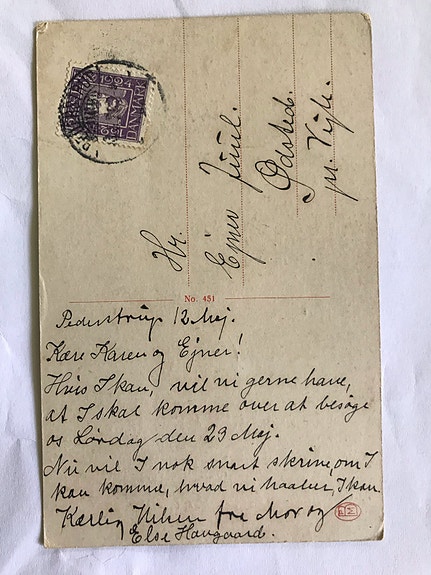 1924
1624
DANMARK
Hr.
Ejner Juul.
Ødsted.
pr. Vejle.
No. 451
Pederstrup 12 Maj.
Kære Karen og Ejner!
Hvis I kan, vil vi gerne have,
at I skal komme over at besøge
os Lørdag den 23 Maj.
Nu vil I nok snart skrive, om I
kan komme, hvad vi haaber, I kan
Kærlig Hilsen fra Mor og
Else Haugaard.